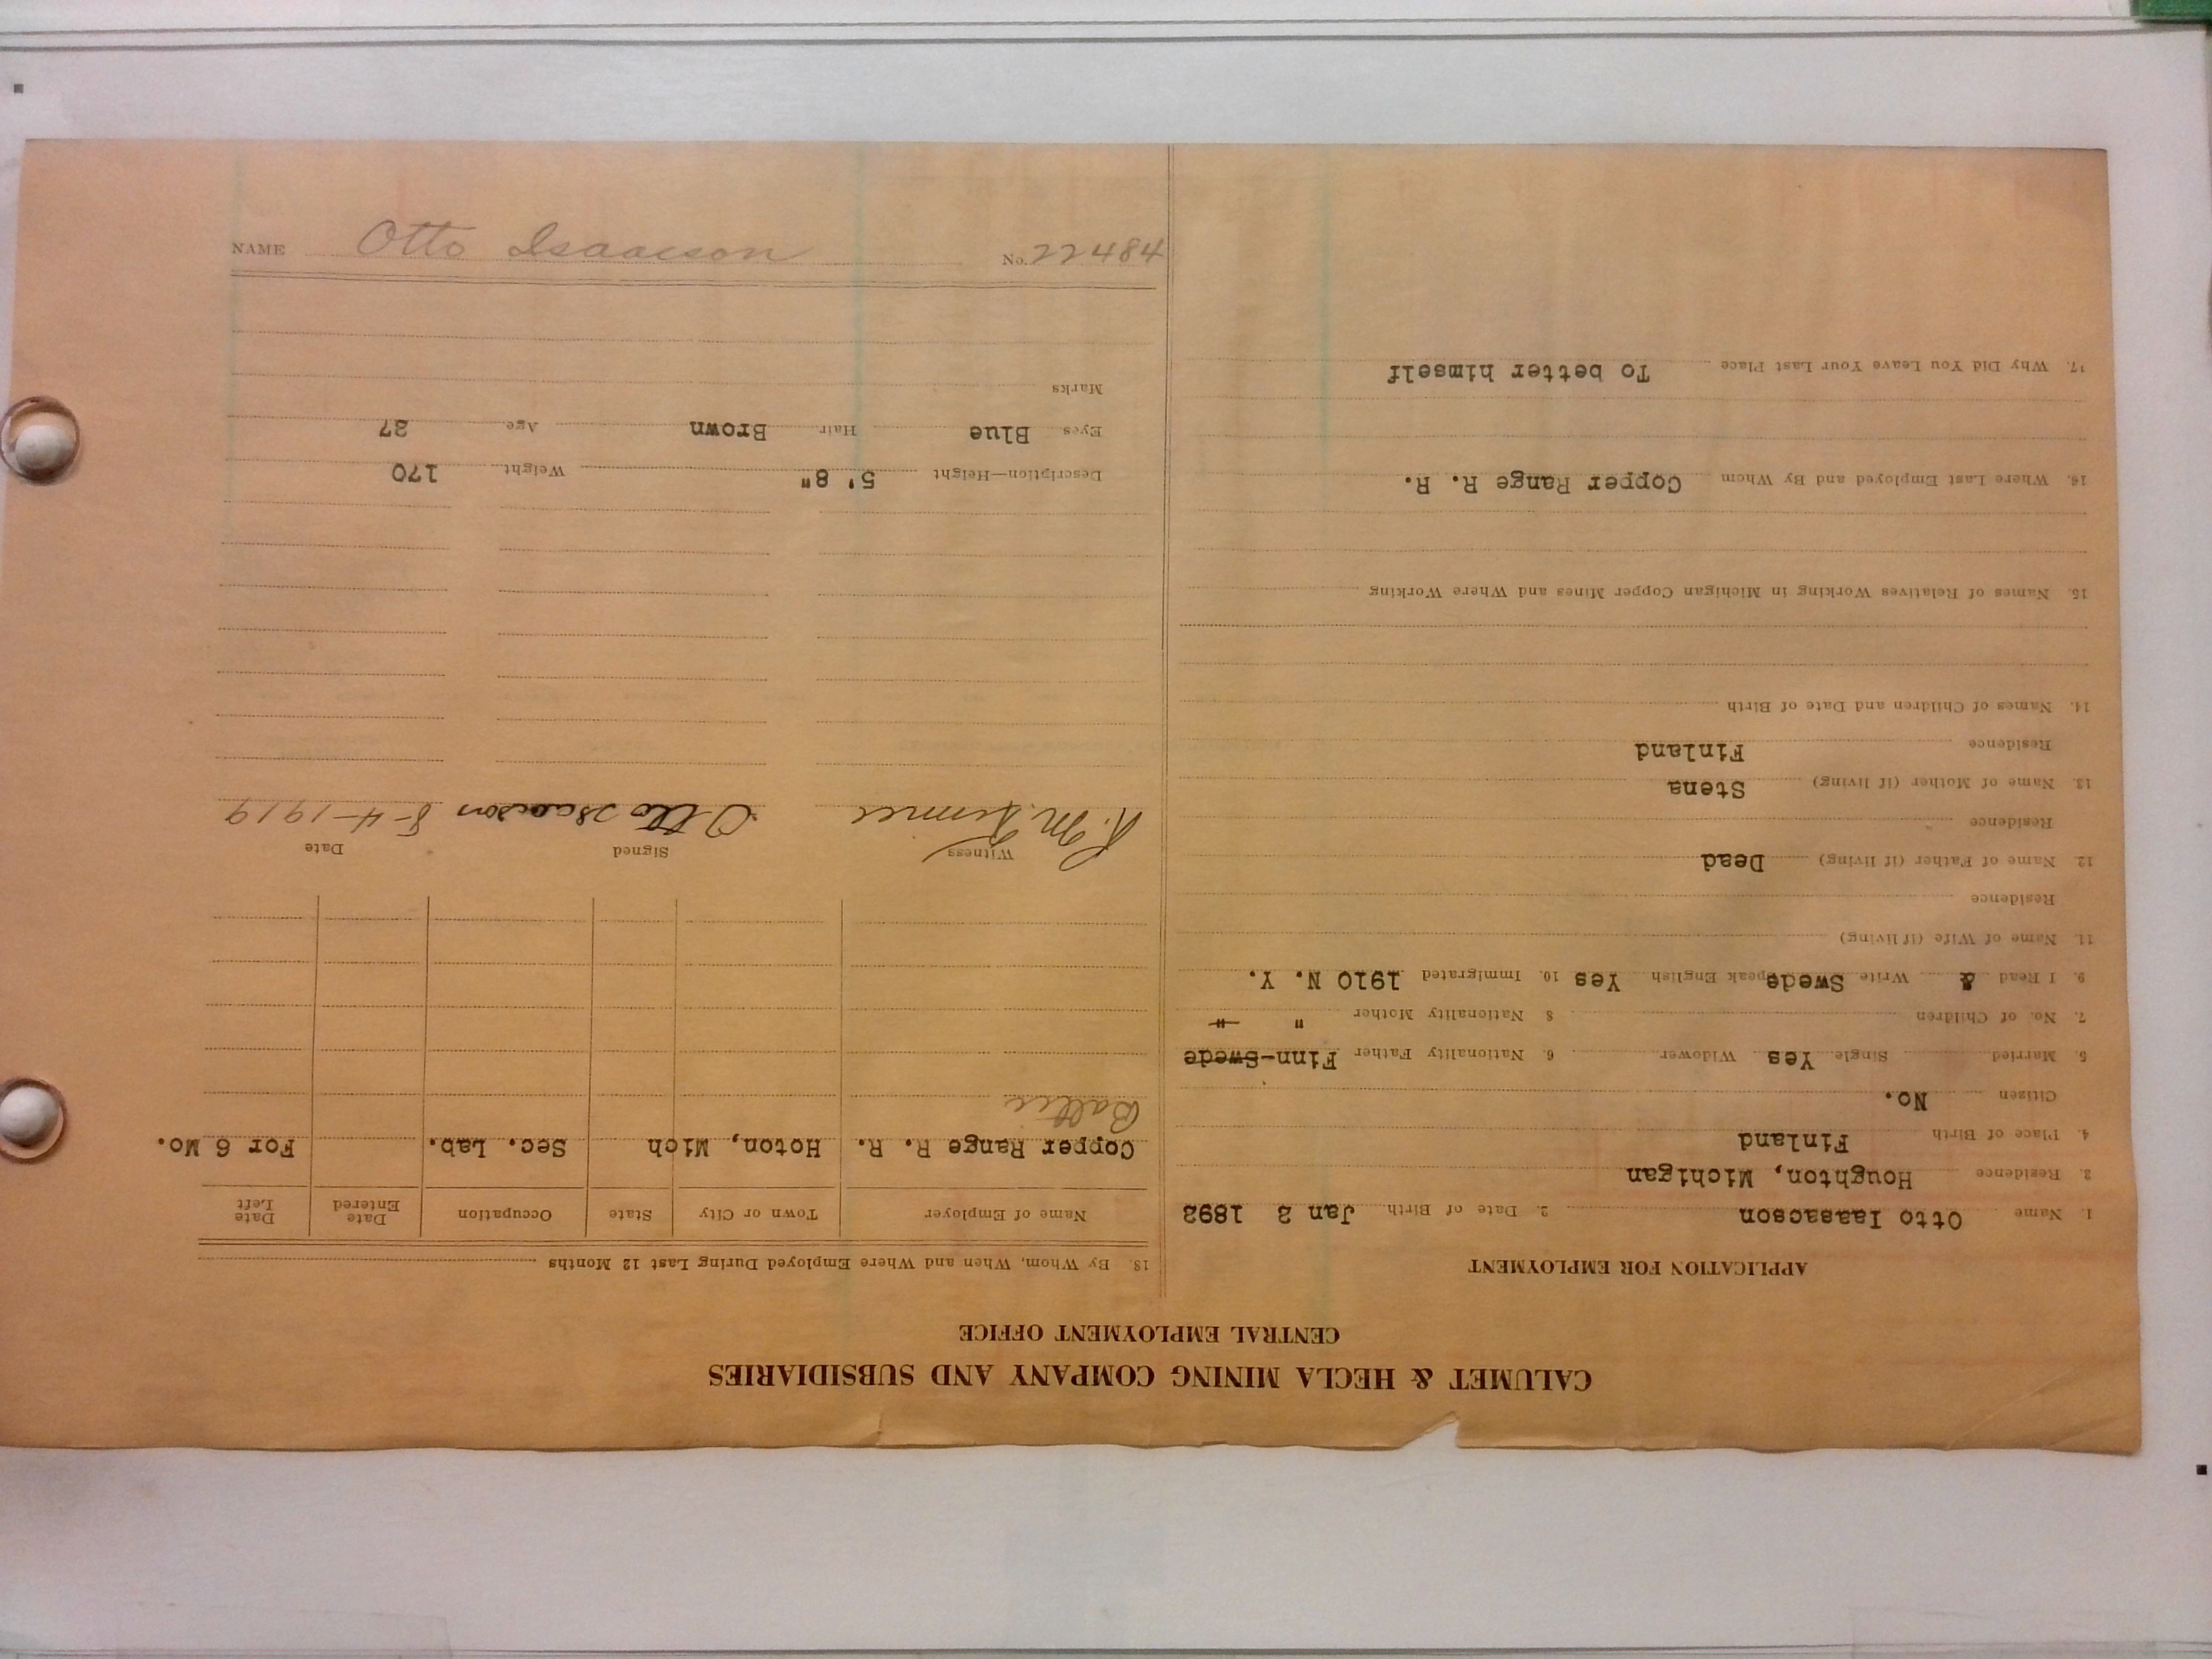 CALUMET & HECLA MINING COMPANY AND SUBSIDIARIES
CENTRAL EMPLOYMENT OFFICE
APPLICATION FOR EMPLOYMENT
1. Name Otto Isaacson 2. Date of Birth Jan 2 1892
3. Residence Houghton, Michigan
4. Place of Birth Finland
Citizen No.
5. Married Single Yes Widower 6. Nationality Father Finn-Swede
7. No. of Children 8 Nationality Mother " "
9. I Read & Write Swede Speak English Yes 10. Immigrated 1910 N. Y.
11. Name of Wife (if living)
Residence
12. Name of Father (if living) Dead
Residence
13. Name of Mother (if living) Stena
Residence Finland
14. Names of Children and Date of Birth
15. Names of Relatives Working in Michigan Copper Mines and Where Working
16. Where Last Employed and By Whom Copper Range R. R.
17. Why Did You Leave Your Last Place To better himself
18. By Whom, When and Where Employed During Last 12 Months
Name of Employer Town or City State Occupation Date Entered Date Left
Copper Range R. R. Hoton, Mich Sec. Lab. For 6 Mo.
Baltic
Witness Signed Date
Otto Isaacson 8-4-1919
Description—Height 5' 8" Weight 170
Eyes Blue Hair Brown Age 27
Marks
NAME Otto Isaacson No. 22484